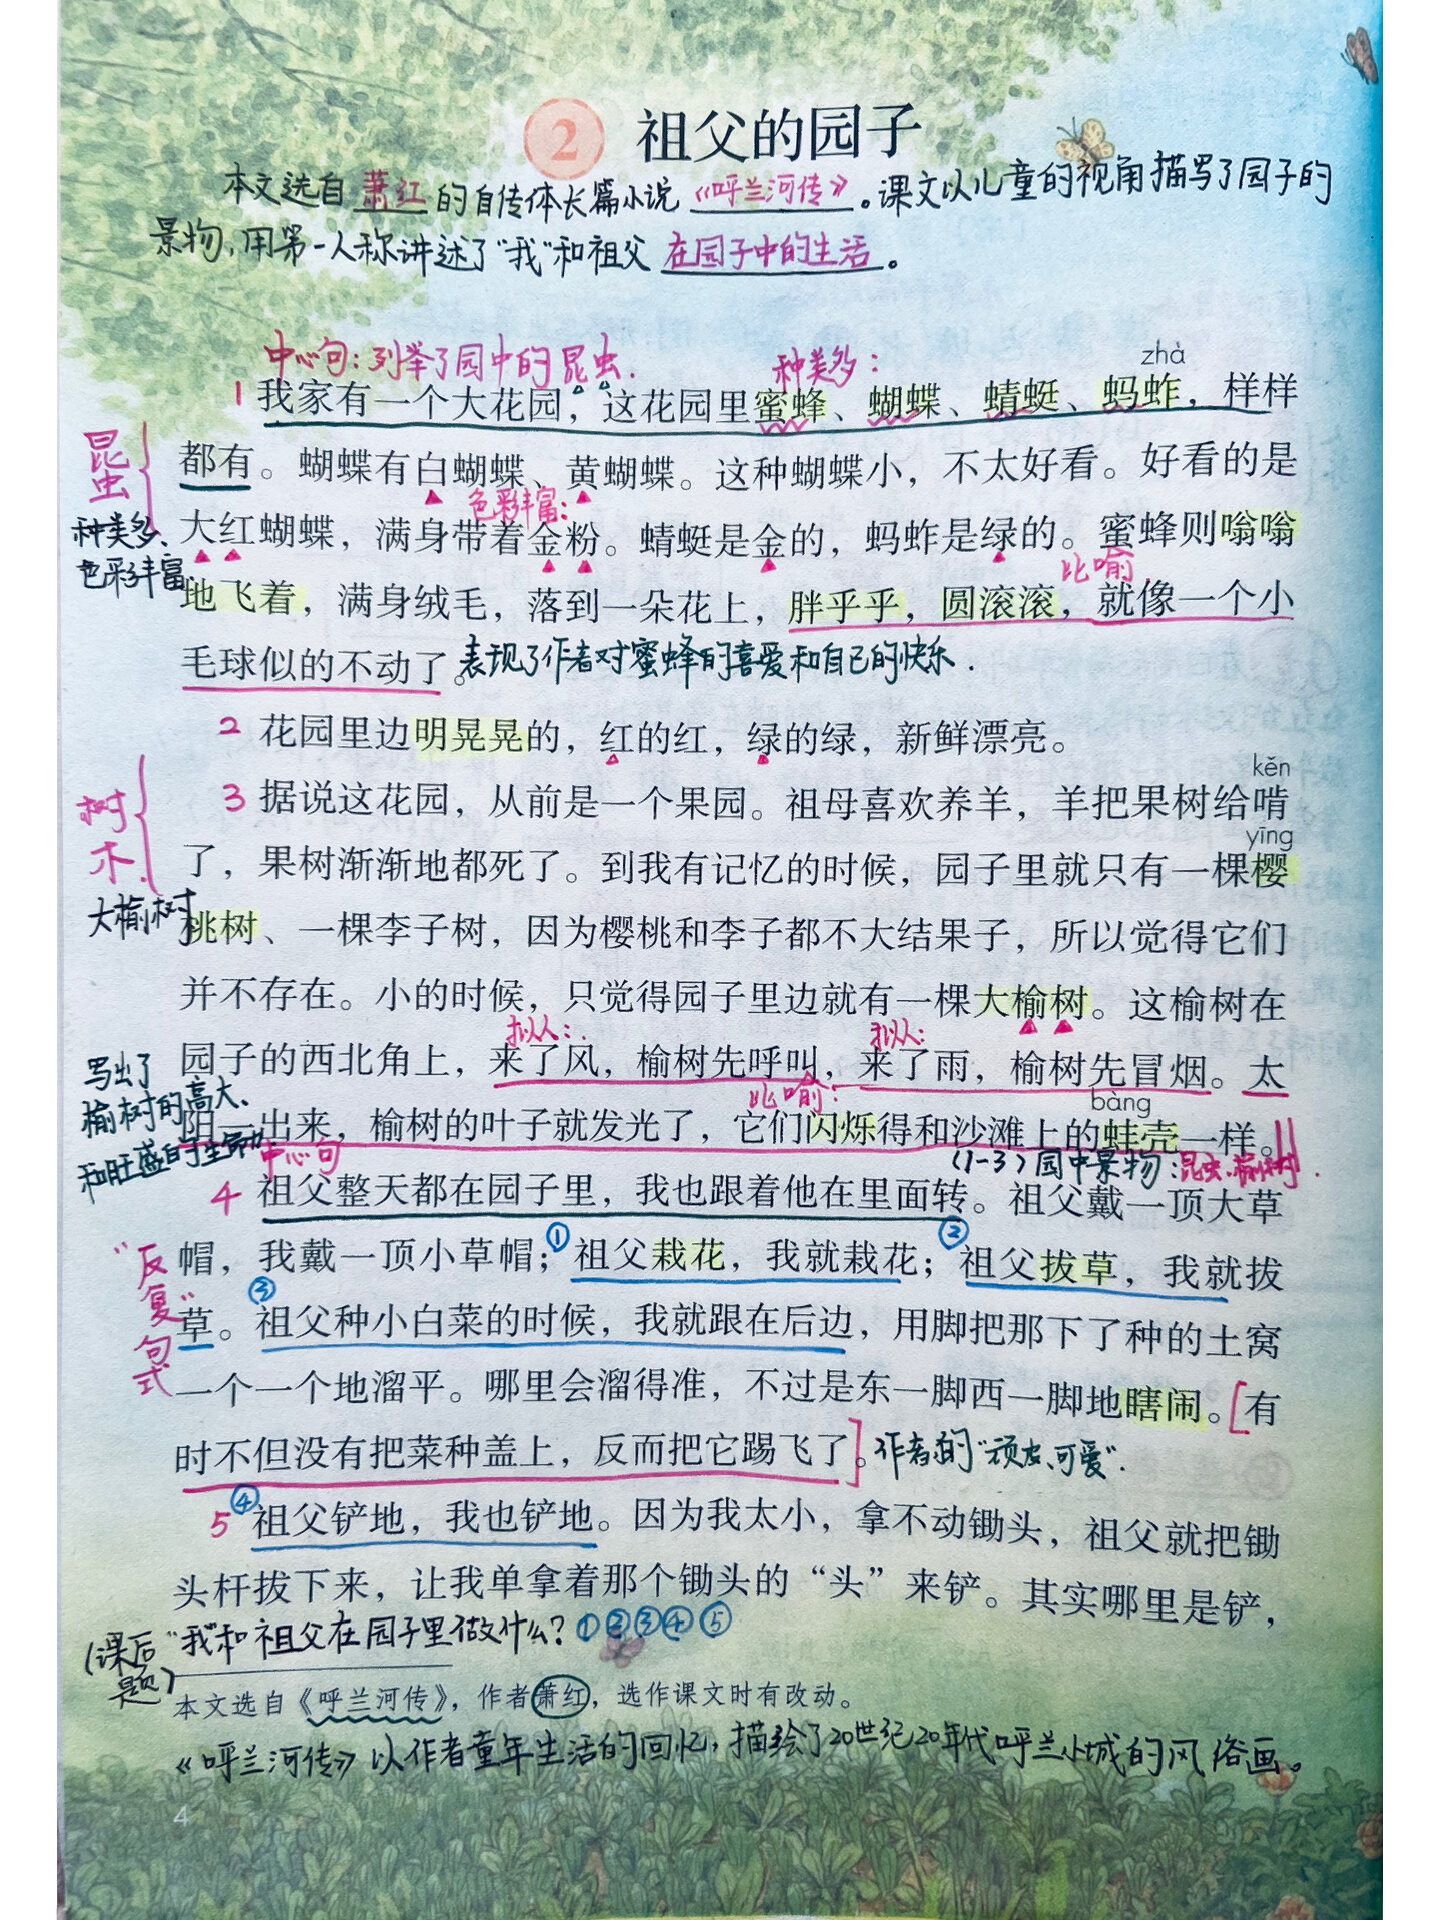 2 祖父的园子
本文选自 萧红 的自传体长篇小说 《呼兰河传》。课文以儿童的视角描写了园子的
景物,用第一人称讲述了"我"和祖父 在园子中的生活。
中心句:列举了园中的昆虫. 种类多: zhà
1 我家有一个大花园，这花园里蜜蜂、蝴蝶、蜻蜓、蚂蚱，样样
昆虫
都有。蝴蝶有白蝴蝶、黄蝴蝶。这种蝴蝶小，不太好看。好看的是
种类多、 色彩丰富:
大红蝴蝶，满身带着金粉。蜻蜓是金的，蚂蚱是绿的。蜜蜂则嗡嗡
色彩丰富. 比喻
地飞着，满身绒毛，落到一朵花上，胖乎乎，圆滚滚，就像一个小
毛球似的不动了。表现了作者对蜜蜂的喜爱和自己的快乐.
2 花园里边明晃晃的，红的红，绿的绿，新鲜漂亮。
kěn
树木.
3 据说这花园，从前是一个果园。祖母喜欢养羊，羊把果树给啃
yīng
了，果树渐渐地都死了。到我有记忆的时候，园子里就只有一棵樱
大榆树
桃树、一棵李子树，因为樱桃和李子都不大结果子，所以觉得它们
并不存在。小的时候，只觉得园子里边就有一棵大榆树。这榆树在
拟人: 拟人:
园子的西北角上，来了风，榆树先呼叫，来了雨，榆树先冒烟。太
写出了
榆树的高大、
和旺盛的生命力
比喻: bàng
阳一出来，榆树的叶子就发光了，它们闪烁得和沙滩上的蚌壳一样。
中心句 (1-3)园中景物:昆虫、榆树.
4 祖父整天都在园子里，我也跟着他在里面转。祖父戴一顶大草
"反复"句式
帽，我戴一顶小草帽；①祖父栽花，我就栽花；②祖父拔草，我就拔
草。③祖父种小白菜的时候，我就跟在后边，用脚把那下了种的土窝
一个一个地溜平。哪里会溜得准，不过是东一脚西一脚地瞎闹。[有
时不但没有把菜种盖上，反而把它踢飞了]。作者的"顽皮、可爱".
5 ④祖父铲地，我也铲地。因为我太小，拿不动锄头，祖父就把锄
头杆拔下来，让我单拿着那个锄头的“头”来铲。其实哪里是铲，
(课后题)"我"和祖父在园子里做什么?①②③④⑤
本文选自《呼兰河传》，作者萧红，选作课文时有改动。
《呼兰河传》以作者童年生活的回忆,描绘了20世纪20年代呼兰小城的风俗画。
4